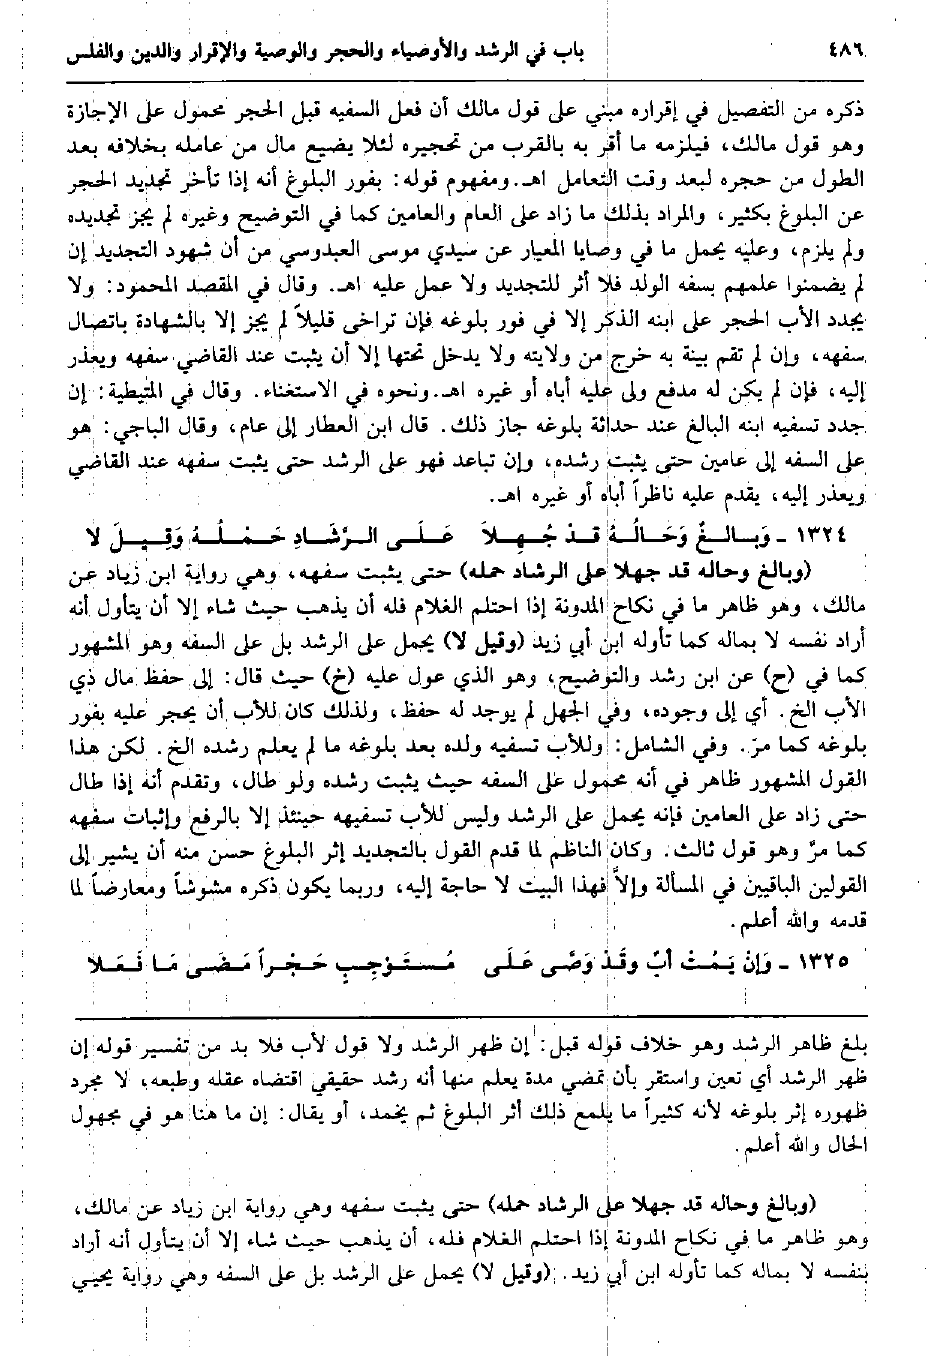 ٤٨٦ باب في الرشد والأوصياء والحجر والوصية والإقرار والدين والفلس
ذكره من التفصيل في إقراره مبني على قول مالك أن فعل السفيه قبل الحجر محمول على الإجازة
وهو قول مالك، فيلزمه ما أقر به بالقرب من تحجيره لئلا يضيع مال من عامله بخلافه بعد
الطول من حجره لبعد وقت التعامل اهـ. ومفهوم قوله: بفور البلوغ أنه إذا تأخر تجديد الحجر
عن البلوغ بكثير، والمراد بذلك ما زاد على العام والعامين كما في التوضيح وغيره لم يجز تجديده
ولم يلزم، وعليه يحمل ما في وصايا المعيار عن سيدي موسى العبدوسي من أن شهود التجديد إن
لم يضمنوا علمهم بسفه الولد فلا أثر للتجديد ولا عمل عليه اهـ. وقال في المقصد المحمود: ولا
يجدد الأب الحجر على ابنه الذكر إلا في فور بلوغه فإن تراخى قليلاً لم يجز إلا بالشهادة باتصال
سفهه، وإن لم تقم بينة به خرج من ولايته ولا يدخل تحتها إلا أن يثبت عند القاضي سفهه ويعذر
إليه، فإن لم يكن له مدفع ولى عليه أباه أو غيره اهـ. ونحوه في الاستغناء. وقال في المتيطية: إن
جدد تسفيه ابنه البالغ عند حداثة بلوغه جاز ذلك. قال ابن العطار إلى عام، وقال الباجي: هو
على السفه إلى عامين حتى يثبت رشده، وإن تباعد فهو على الرشد حتى يثبت سفهه عند القاضي
ويعذر إليه، يقدم عليه ناظراً أباه أو غيره اهـ.
١٣٢٤ - وَبَالِغٌ وَحَالُهُ قَدْ جُهِلاَ عَلَى الرَّشَادِ حَمْلُهُ وَقِيلَ لا
(وبالغ وحاله قد جهلا على الرشاد حمله) حتى يثبت سفهه، وهي رواية ابن زياد عن
مالك، وهو ظاهر ما في نكاح المدونة إذا احتلم الغلام فله أن يذهب حيث شاء إلا أن يتأول أنه
أراد نفسه لا بماله كما تأوله ابن أبي زيد (وقيل لا) يحمل على الرشد بل على السفه وهو المشهور
كما في (ح) عن ابن رشد والتوضيح، وهو الذي عول عليه (خ) حيث قال: إلى حفظ مال ذي
الأب الخ. أي إلى وجوده، وفي الجهل لم يوجد له حفظ، ولذلك كان للأب أن يحجر عليه بفور
بلوغه كما مرّ. وفي الشامل: وللأب تسفيه ولده بعد بلوغه ما لم يعلم رشده الخ. لكن هذا
القول المشهور ظاهر في أنه محمول على السفه حيث يثبت رشده ولو طال، وتقدم أنه إذا طال
حتى زاد على العامين فإنه يحمل على الرشد وليس للأب تسفيهه حينئذ إلا بالرفع وإثبات سفهه
كما مرّ وهو قول ثالث. وكان الناظم لما قدم القول بالتجديد إثر البلوغ حسن منه أن يشير إلى
القولين الباقيين في المسألة وإلاَّ فهذا البيت لا حاجة إليه، وربما يكون ذكره مشوشاً ومعارضاً لما
قدمه والله أعلم.
١٣٢٥ - وَإِنْ يَمُتْ أَبٌ وقَدْ وَصَّى عَلَى مُسْتَوْجِبٍ حَجْراً مَضَى مَا فَعَلا
بلغ ظاهر الرشد وهو خلاف قوله قبل: إن ظهر الرشد ولا قول لأب فلا بد من تفسير قوله إن
ظهر الرشد أي تعين واستقر بأن تمضي مدة يعلم منها أنه رشد حقيقي اقتضاه عقله وطبعه، لا مجرد
ظهوره إثر بلوغه لأنه كثيراً ما يلمع ذلك أثر البلوغ ثم يخمد، أو يقال: إن ما هنا هو في مجهول
الحال والله أعلم.
(وبالغ وحاله قد جهلا على الرشاد حمله) حتى يثبت سفهه وهي رواية ابن زياد عن مالك،
وهو ظاهر ما في نكاح المدونة إذا احتلم الغلام فله، أن يذهب حيث شاء إلا أن يتأول أنه أراد
بنفسه لا بماله كما تأوله ابن أبي زيد. (وقيل لا) يحمل على الرشد بل على السفه وهي رواية يحيى